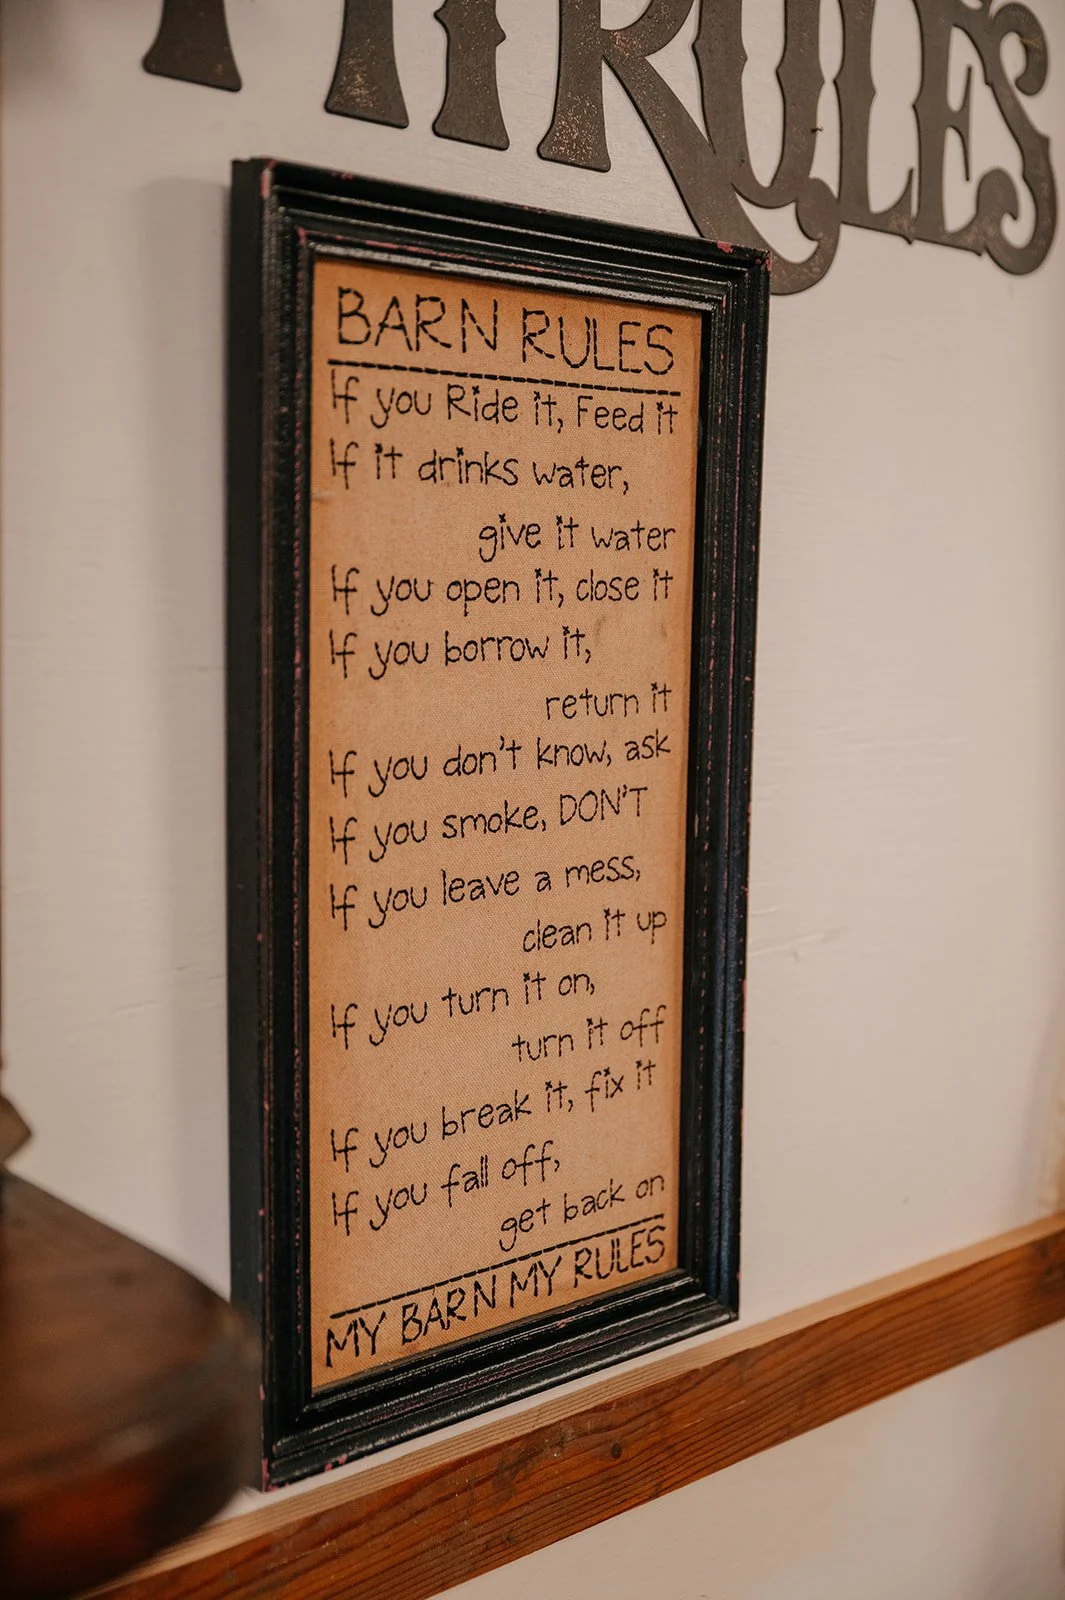 RULES
BARN RULES
If you Ride it, Feed it
If it drinks water,
give it water
If you open it, close it
If you borrow it,
return it
If you don't know, ask
If you smoke, DON'T
If you leave a mess,
clean it up
If you turn it on,
turn it off
If you break it, fix it
If you fall off,
get back on
MY BARN MY RULES